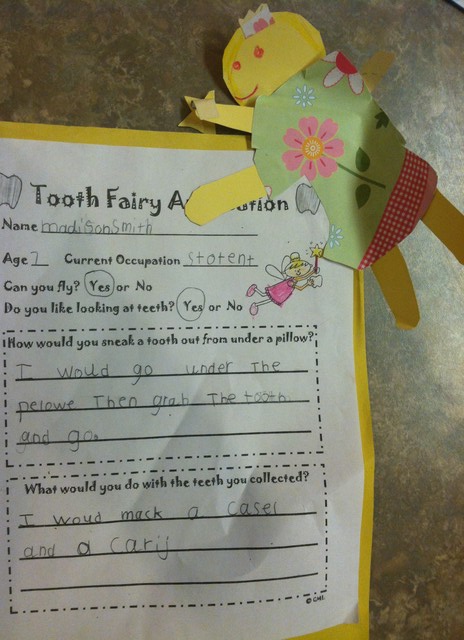 Tooth Fairy A cation
Name madison smith
Age 7 Current Occupation stotent
Can you fly? Yes or No
Do you like looking at teeth? Yes or No
How would you sneak a tooth out from under a pillow?
I would go under The
pelowe Then grah The tooth
and go.
What would you do with the teeth you collected?
I woud mack a casel
and a carij